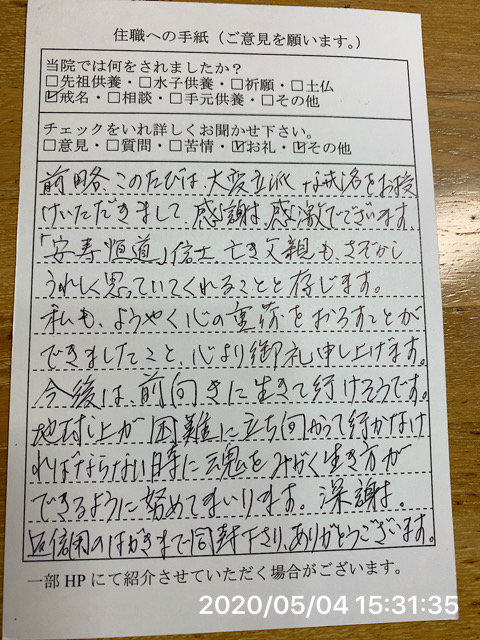 住職への手紙（ご意見を願います。）
当院では何をされましたか？
□先祖供養・□水子供養・□祈願・□土仏
☑戒名・□相談・□手元供養・□その他
チェックをいれ詳しくお聞かせ下さい。
□意見・□質問・□苦情・☑お礼・☑その他
前略、このたびは、大変立派な戒名をお授
けいただきまして、感謝、感激でございます。
「安寿恒道」信士、亡き父親も、さぞかし
うれしく思っていてくれることと存じます。
私も、ようやく心の重荷をおろすことが
できましたこと、心より御礼申し上げます。
今後は、前向きに生きて行けそうです。
地球上が困難に立ち向かって行かなけ
ればならない時に魂をみがく生き方が
できるように努めてまいります。深謝。
返信用のはがきまで同封下さり、ありがとうございます。
一部HPにて紹介させていただく場合がございます。
2020/05/04 15:31:35